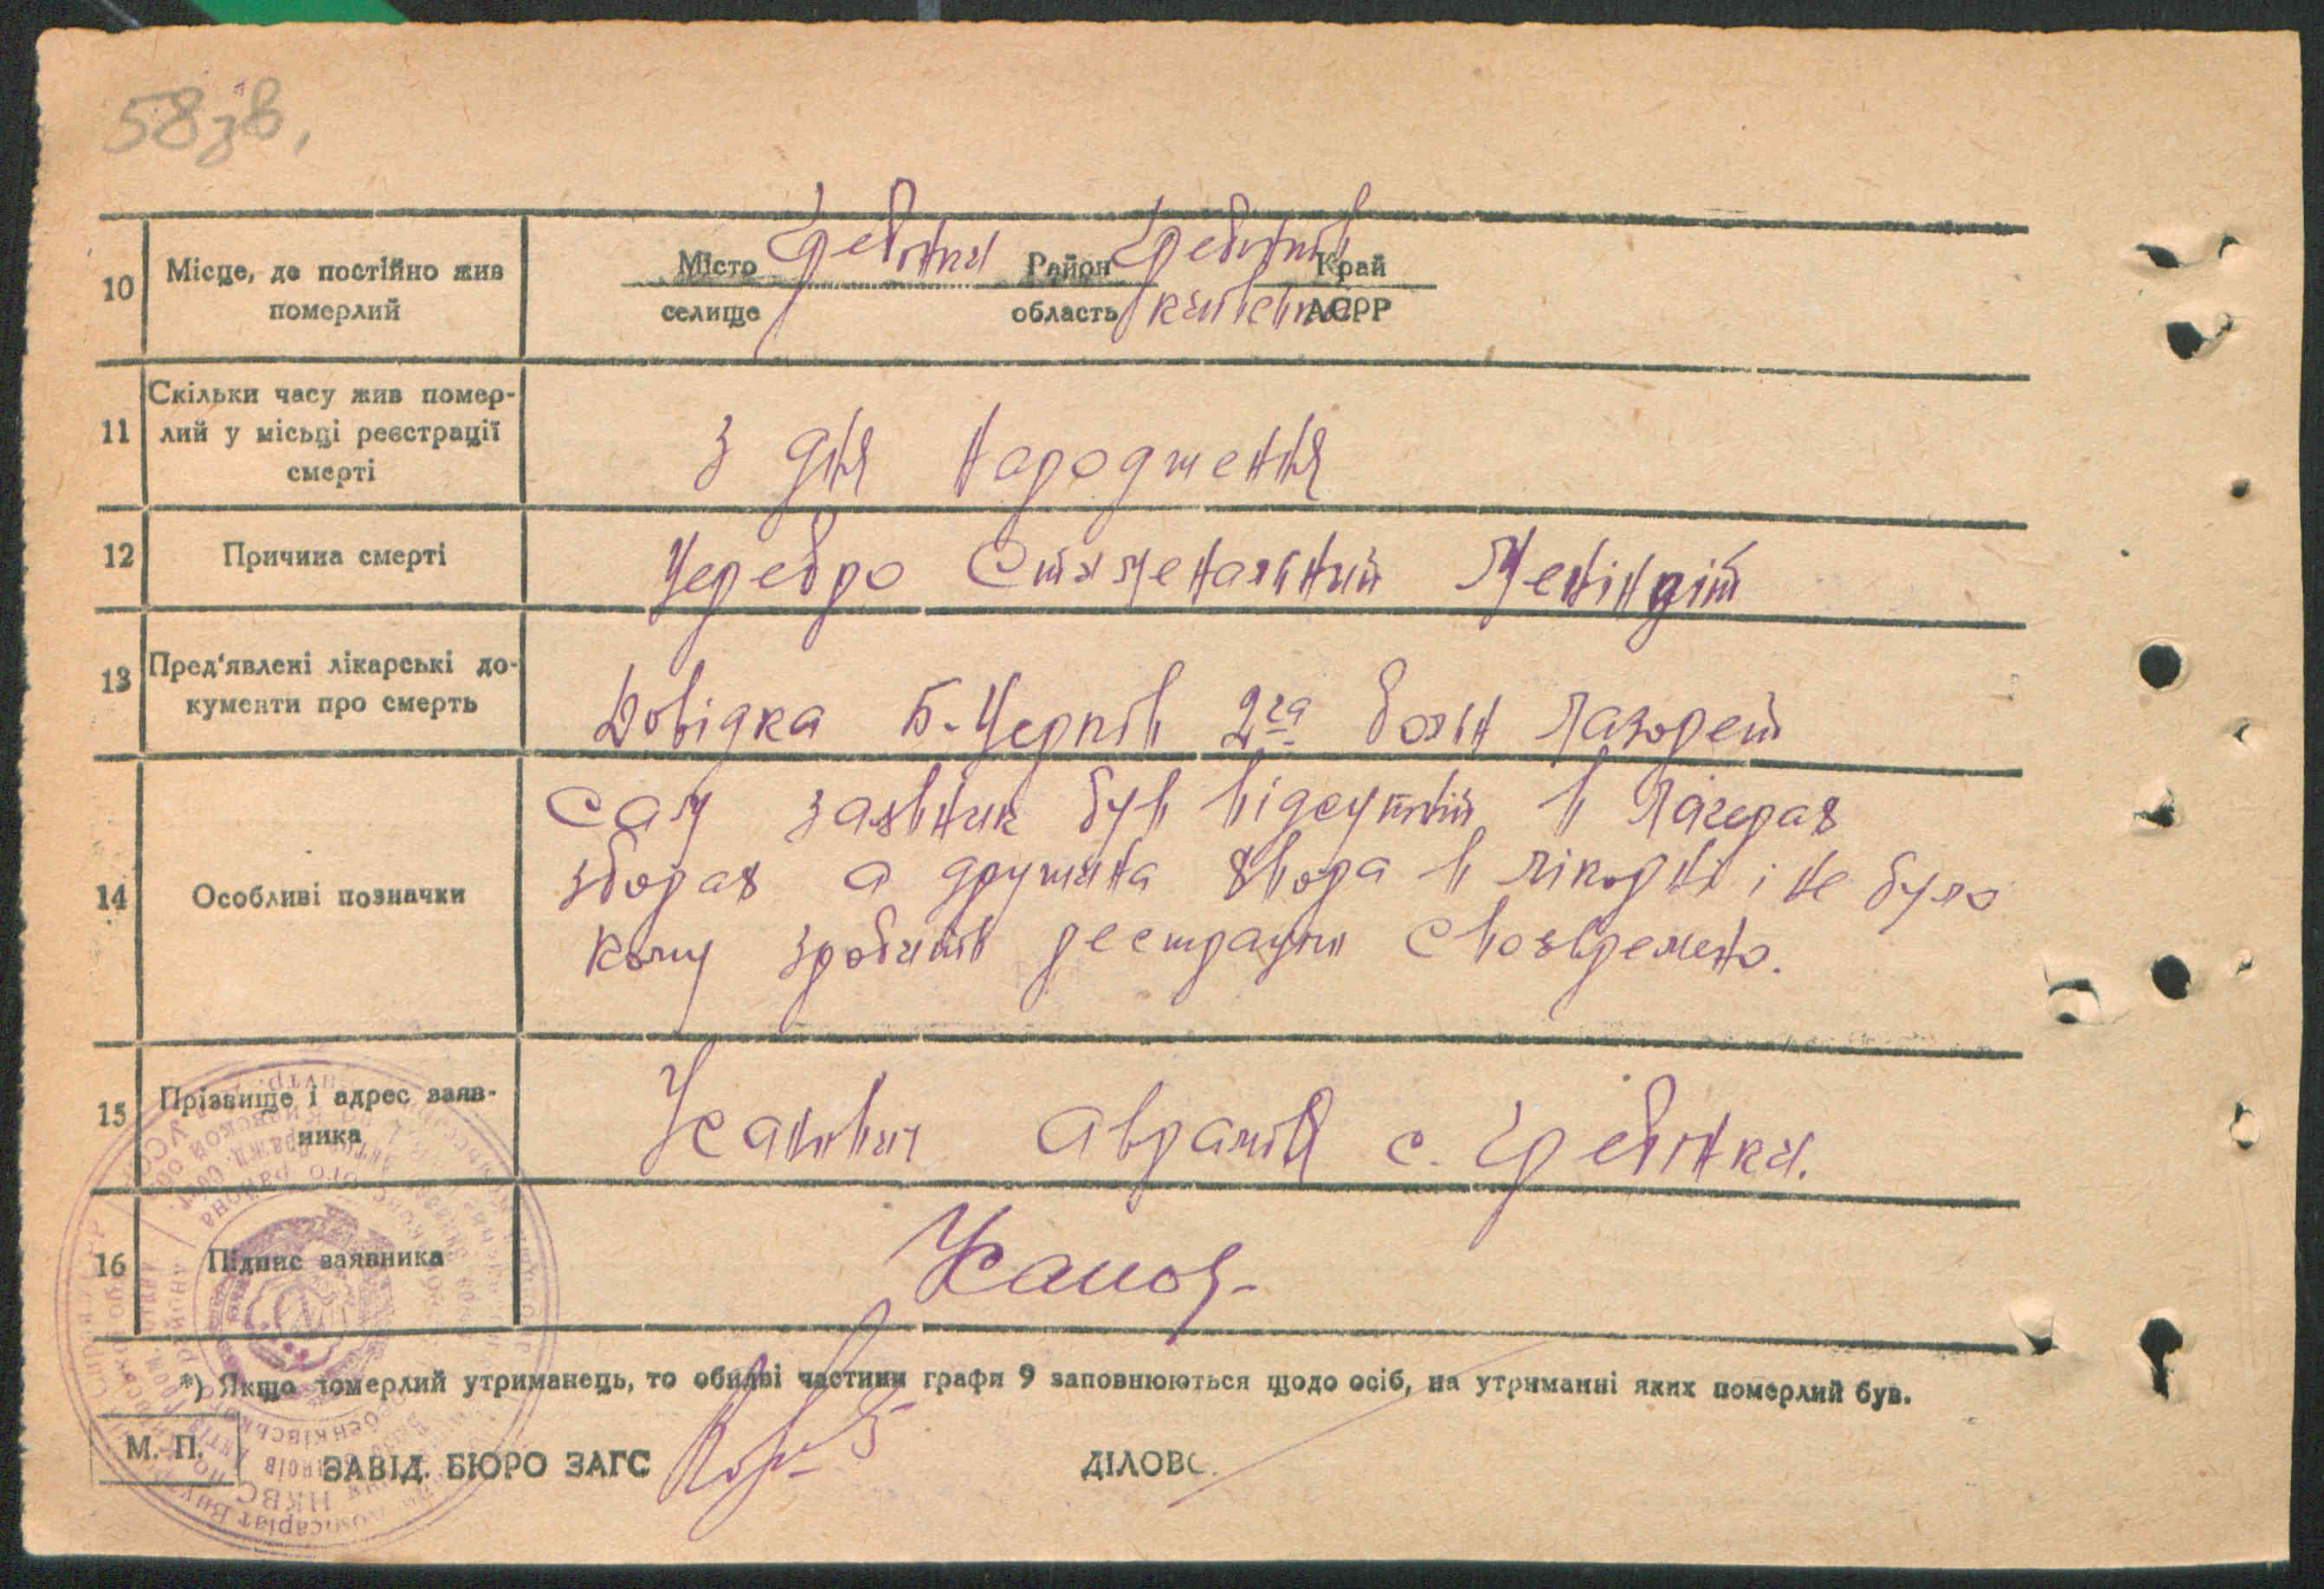 58зв.
10 Місце, де постійно жив померлий
Місто Гребінки Район Гребінків Край
селище область Київська АСРР
11 Скільки часу жив помер-
лий у місьці реєстрації
смерті
З дня народження
12 Причина смерті
Церебро Спіменальний Менінгіт
13 Пред'явлені лікарські до-
кументи про смерть
Довідка Б-Церків 2га больн лазорет
14 Особливі позначки
Сам заявник був відсутній в лагерах
зборах а дружина хвора в лікарні і не було
кому зробить реєстрацію своєвремено.
15 Прізвище і адрес заяв-
ника
Аврамій с. Гребінки.
16 Підпис заявника
*) Якщо померлий утриманець, то обидві частини графи 9 заповнюються щодо осіб, на утриманні яких померлий був.
М. П.
ЗАВІД. БЮРО ЗАГС
ДІЛОВС.